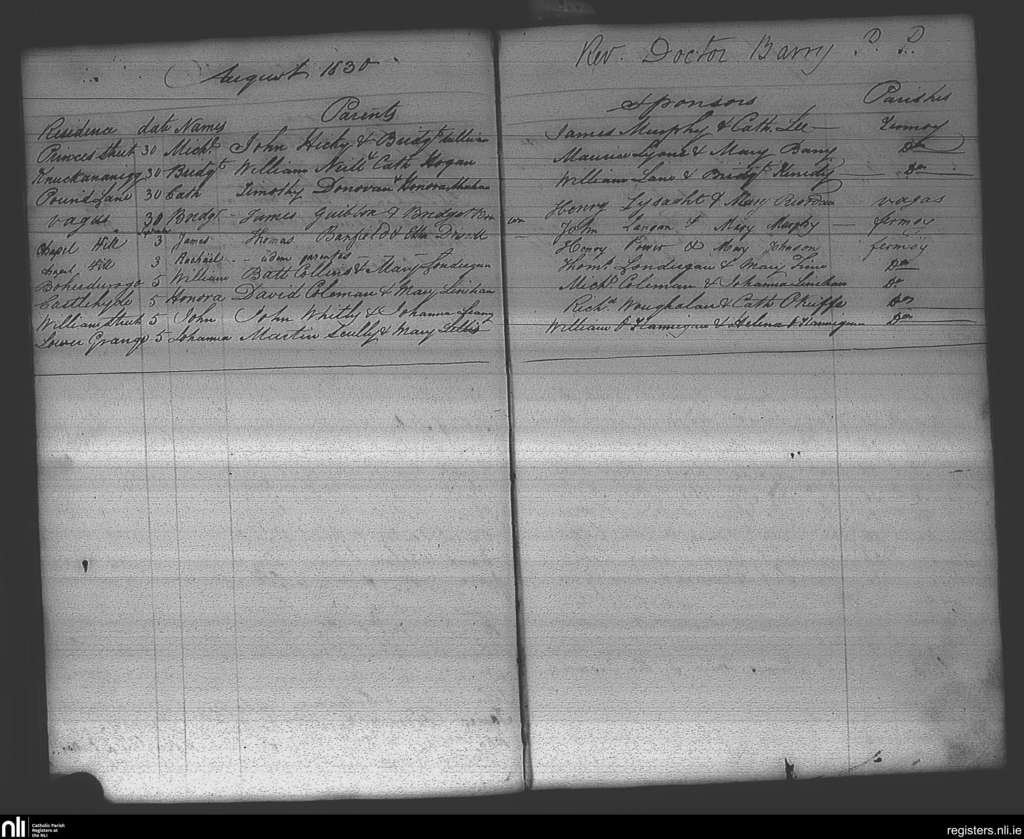 August 1830
Rev. Doctor Barry P. P.
Residence date Names Parents Sponsors Parishes
Princes Street 30 Michl. John Hicky & Bridgt. James Murphy & Cath. Lee Fermoy
Knuckananigg 30 Bridgt. William Neill & Cath Hogan Maurice Lyons & Mary Barry Do
Pound Lane 30 Cath Timothy Donovan & Honora William Lane & Bridgt. Kenedy Do
Vagus 30 Bridgt James Guibton & Bridget Henry Lysaght & Mary Riordan vagas
Chapel Hill 3 James Thomas Barfield & John Langan & Mary Murphy fermoy
Chapel Hill 3 Rachael - - iidem parentes Henry Power & Mary Johnson fermoy
5 William Batt Collins & Mary Londergan Thoms. Londergan & Mary Do
Castlehyde 5 Honora David Coleman & Mary Linehan Michl. Coleman & Johanna Linehan Do
William Street 5 John John Whitby & Johanna Richd. Woughalan & Cath OKeiffe Do
Lower Grange 5 Johanna Martin Scully & Mary William O'Flannigan & Helena O'Flannigan Do
nli Catholic Parish Registers at the NLI
registers.nli.ie